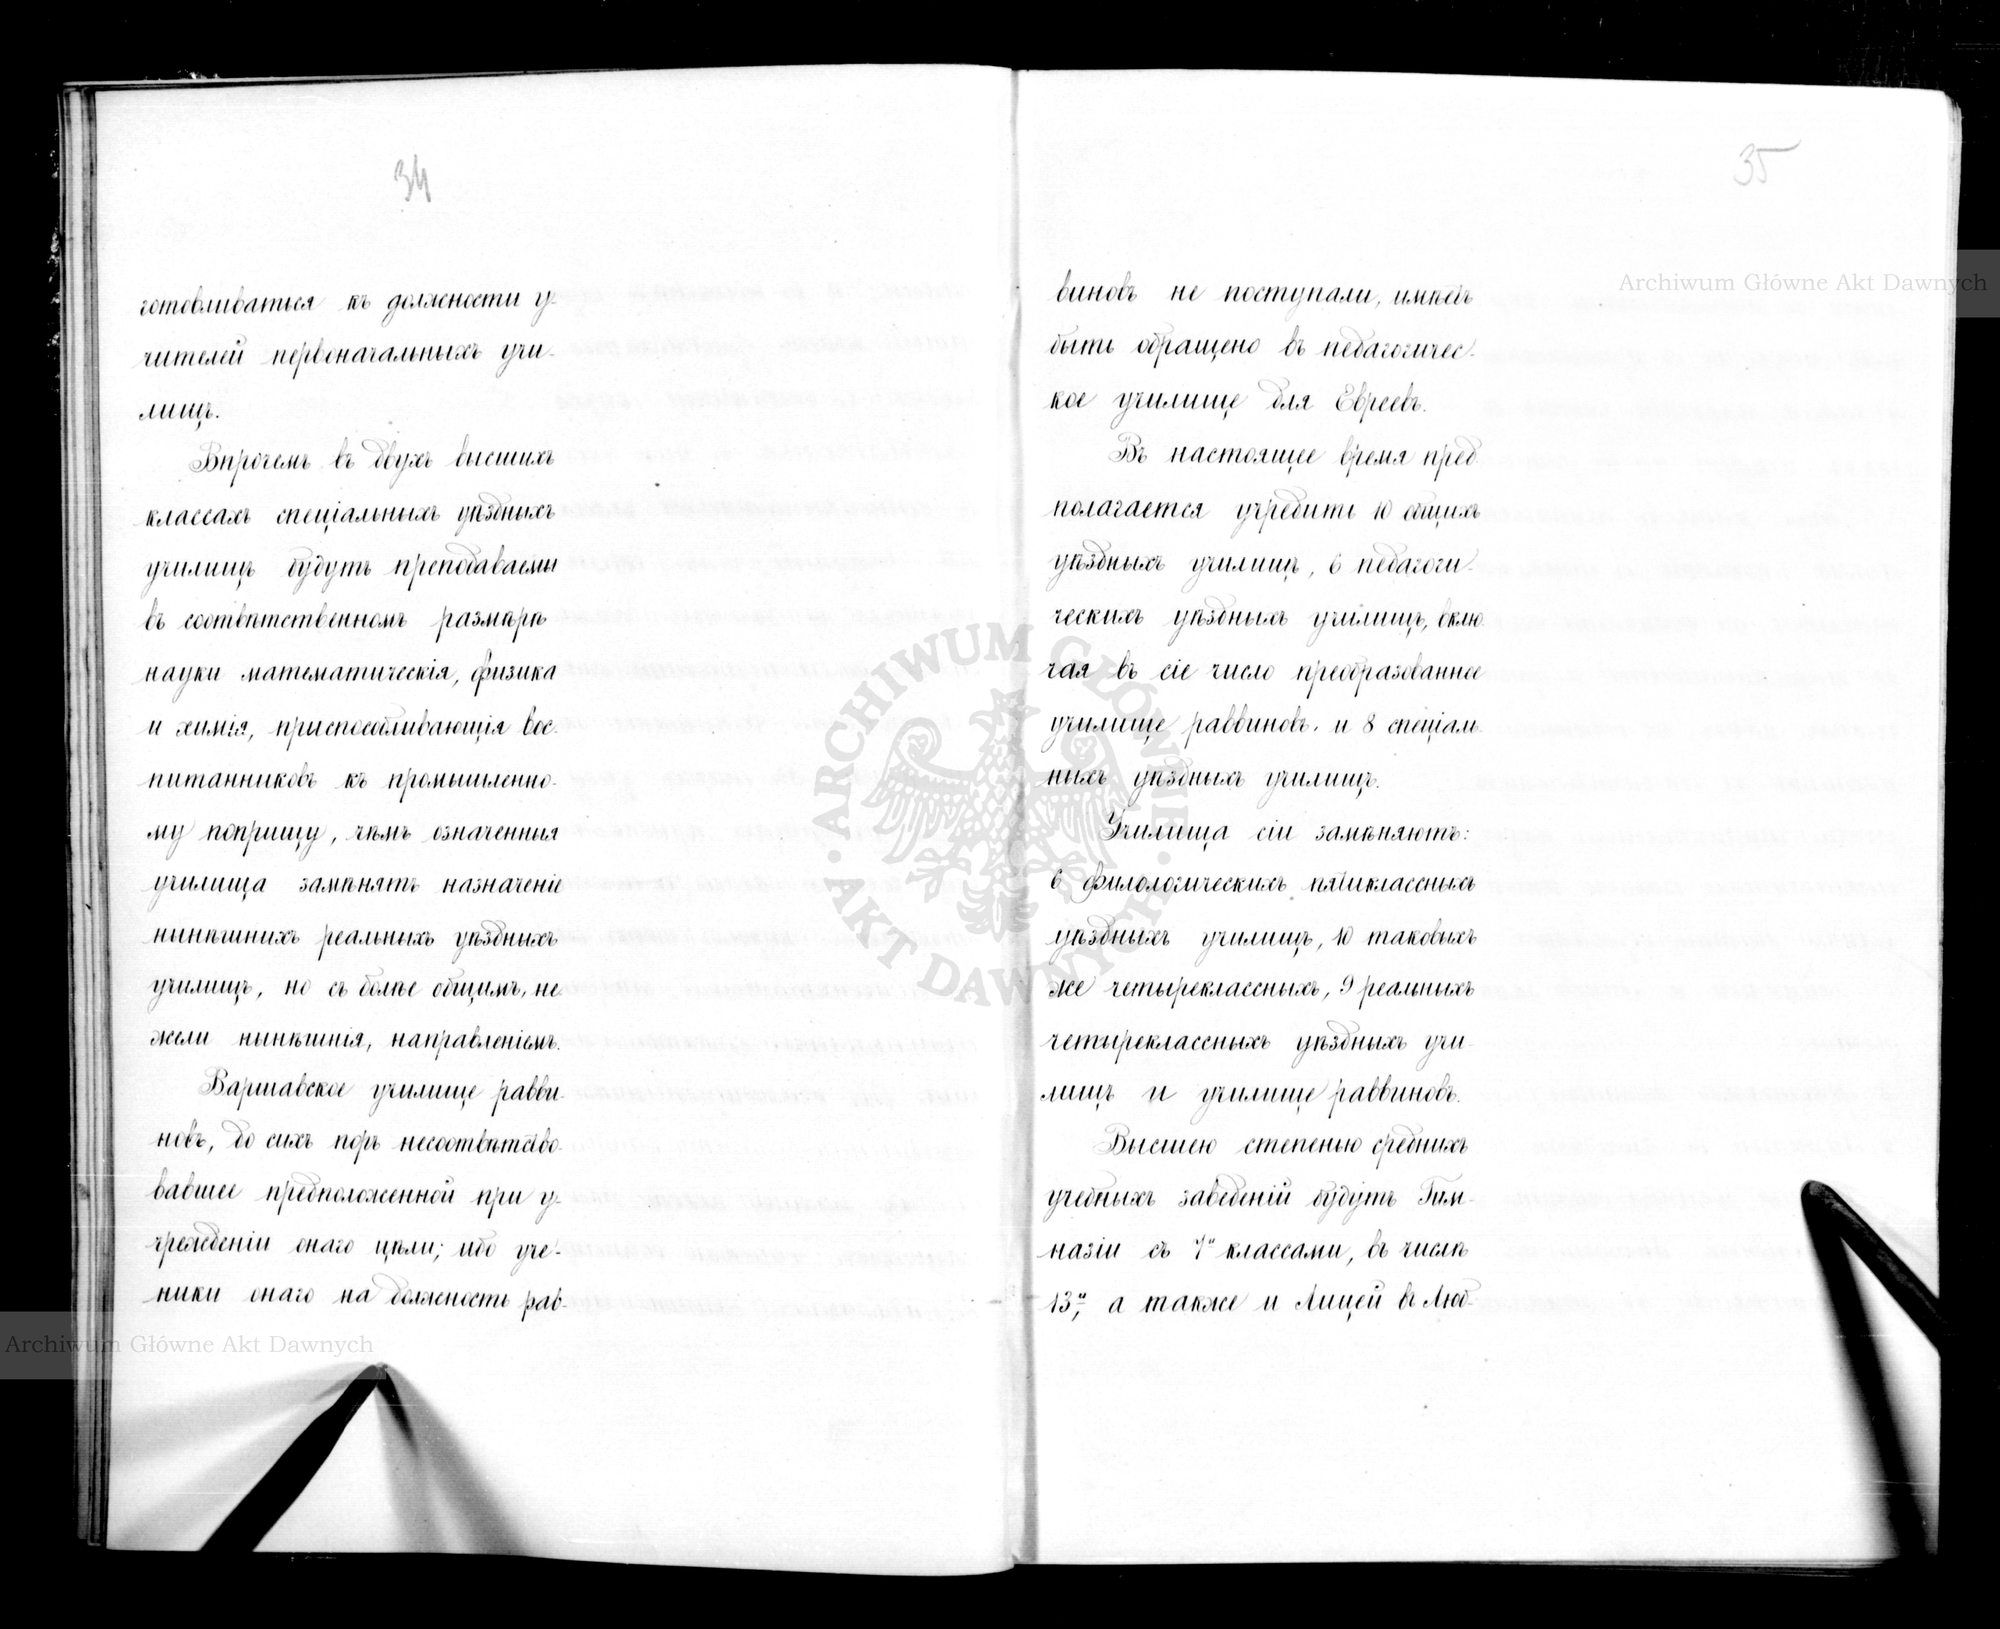 34
готовливаться къ должности у-
чителей первоначальныхъ учи-
лищъ.
Впрочемъ въ двухъ высшихъ
классахъ спеціальныхъ уѣздныхъ
училищъ будутъ преподаваемы
въ соотвѣтственномъ размѣрѣ
науки математическія, физика
и химія, приспособливающія вос-
питанниковъ къ промышленно-
му поприщу, чѣмъ означенныя
училища замѣнятъ назначеніе
нынѣшнихъ реальныхъ уѣздныхъ
училищъ, но съ болѣе общимъ, не
жели нынѣшнія, направленіемъ.
Варшавское училище равви-
новъ, до сихъ поръ несоотвѣтство-
вавшее предположенной при у-
чрежденіи онаго цѣли; ибо уче-
ники онаго на должность рав-
35
виновъ не поступали, имѣетъ
быть обращено въ педагогичес-
кое училище для Евреевъ.
Въ настоящее время пред
полагается учредить 10 общихъ
уѣздныхъ училищъ, 6 педагоги-
ческихъ уѣздныхъ училищъ, вклю
чая въ сіе число преобразованное
училище раввиновъ, и 8 спеціаль
ныхъ уѣздныхъ училищъ.
Училища сіи замѣняютъ:
6 филологическихъ пятиклассныхъ
уѣздныхъ училищъ, 10 таковыхъ
же четыреклассныхъ, 9 реальныхъ
четыреклассныхъ уѣздныхъ учи-
лищъ и училище раввиновъ.
Высшею степенью среднихъ
учебныхъ заведеній будутъ Гим-
назіи съ 7ю классами, въ числѣ
13, а также и Лицей въ Люб-
Archiwum Główne Akt Dawnych
Archiwum Główne Akt Dawnych
ARCHIWUM GŁÓWNE
AKT DAWNYCH